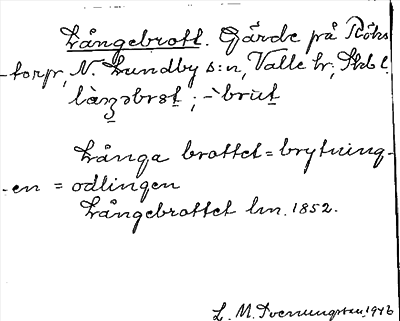 Långebrott. Gärde på Röks
-torp, N. Lundby s:n, Valle hr; Skbl.
; -`brut
Långa brottet = brytning-
-en = odlingen
Långebrottet lm. 1852.
L. M. Svenungsson, 1946